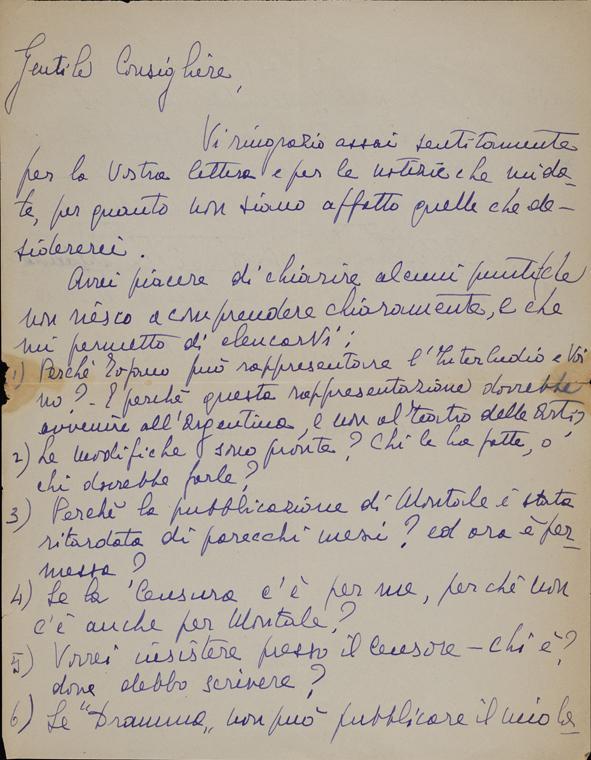 Gentile Consigliere,
Vi ringrazio assai sentitamente
per la Vostra lettera e per le notizie che mi da-
te, per quanto non siano affatto quelle che de-
sidererei.
Avrei piacere di chiarire alcuni punti che
non riesco a comprendere chiaramente, e che
mi permetto di elencarVi:
1) Perchè può rappresentare l'Interludio e Voi
no? - E perchè questa rappresentazione dovrebbe
avvenire all'Argentina, e non al teatro delle Arti?
2) Le modifiche sono pronte? Chi le ha fatte, o
chi dovrebbe farle?
3) Perchè la pubblicazione di Montale è stata
ritardata di parecchi mesi? ed ora è per-
messa?
4) Se la Censura c'è per me, perchè non
c'è anche per Montale?
5) Vorrei insistere presso il Censore - chi è?
dove debbo scrivere?
6) Se "Dramma" non può pubblicare il mio la-